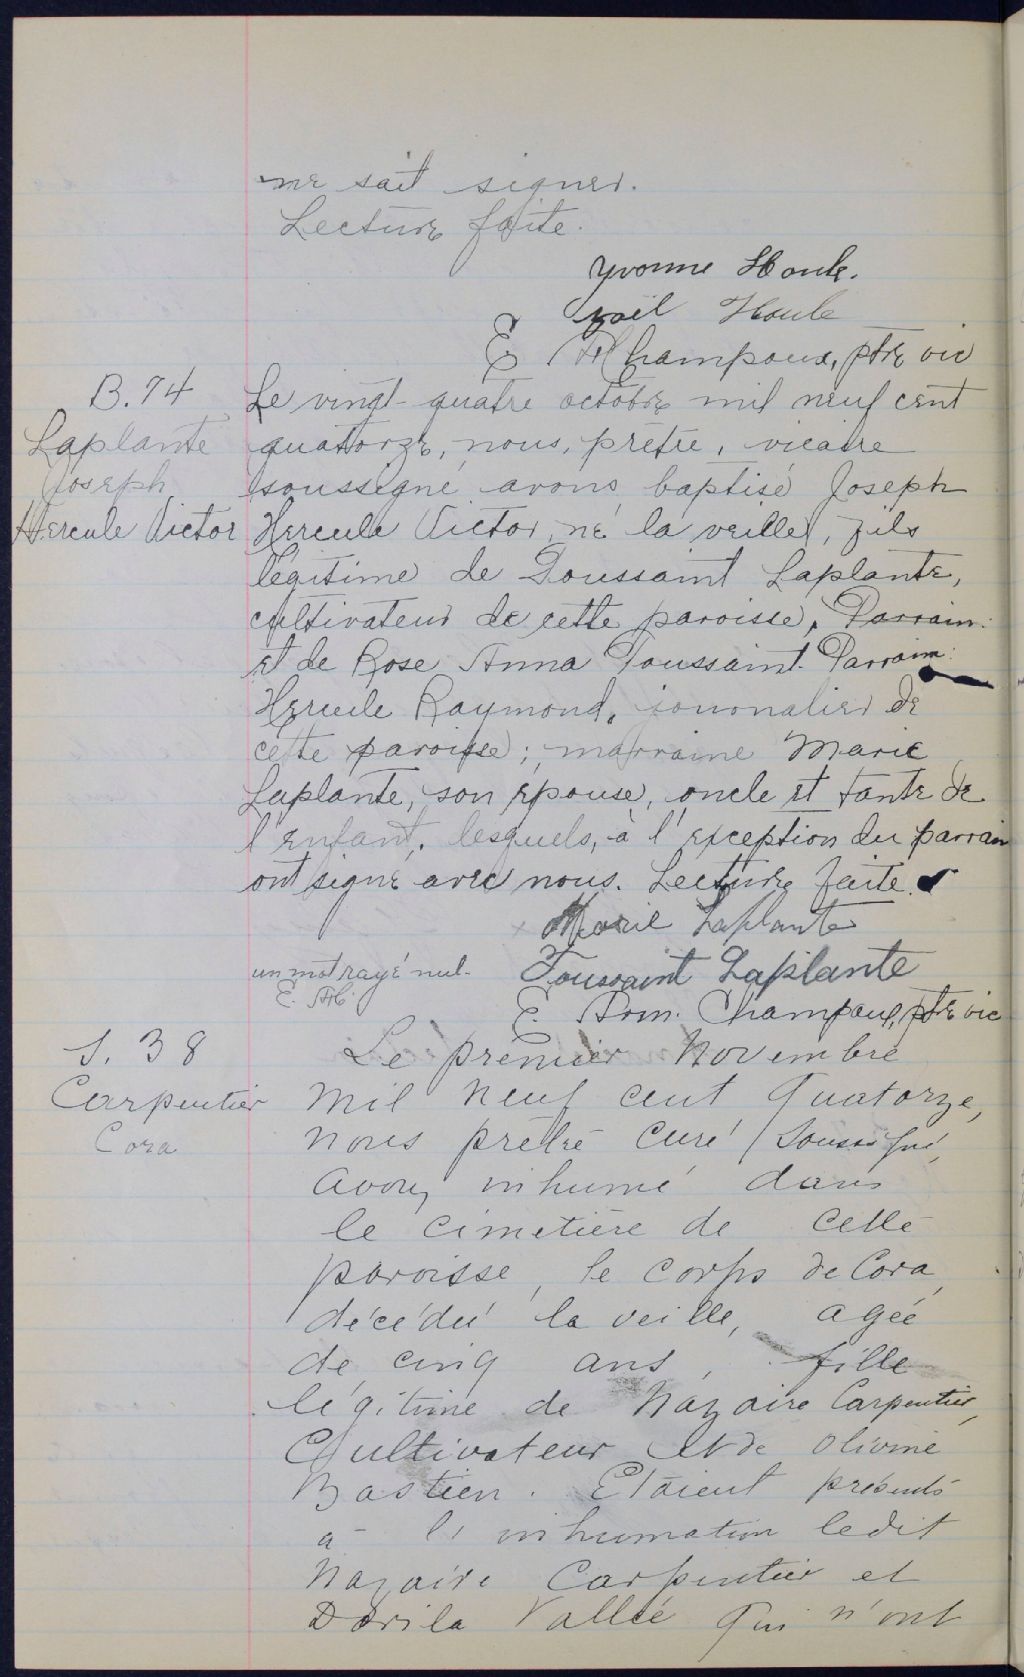 ne sait signer.
Lecture faite.
Yvonne Houle.
Joël Houle
E Ad Champoux, ptre vic
B. 74
Laplante
Joseph
Hercule Victor
Le vingt-quatre octobre mil neuf cent
quatorze, nous, prêtre, vicaire
soussigné avons baptisé Joseph
Hercule Victor, né la veille, fils
légitime de Toussaint Laplante,
cultivateur de cette paroisse, Parrain:
et de Rose Anna Toussaint. Parrain:
Hercule Raymond, journalier de
cette paroisse; marraine Marie
Laplante, son épouse, oncle et tante de
l'enfant, lesquels, à l'exception du parrain
ont signé avec nous. Lecture faite.
Marie Laplante
Toussaint Laplante
un mot rayé nul.
E. Champoux, ptre vic
S. 38
Carpentier
Cora
Le premier Novembre
mil neuf cent quatorze,
nous prêtre curé soussigné,
avons inhumé dans
le cimetière de cette
paroisse, le corps de Cora,
décédée la veille, agée
de cinq ans, fille
légitime de Nazaire Carpentier,
Cultivateur et de Olivine
Bastien. Etaient présents
à l'inhumation ledit
Nazaire Carpentier et
Dorila Vallée qui n'ont